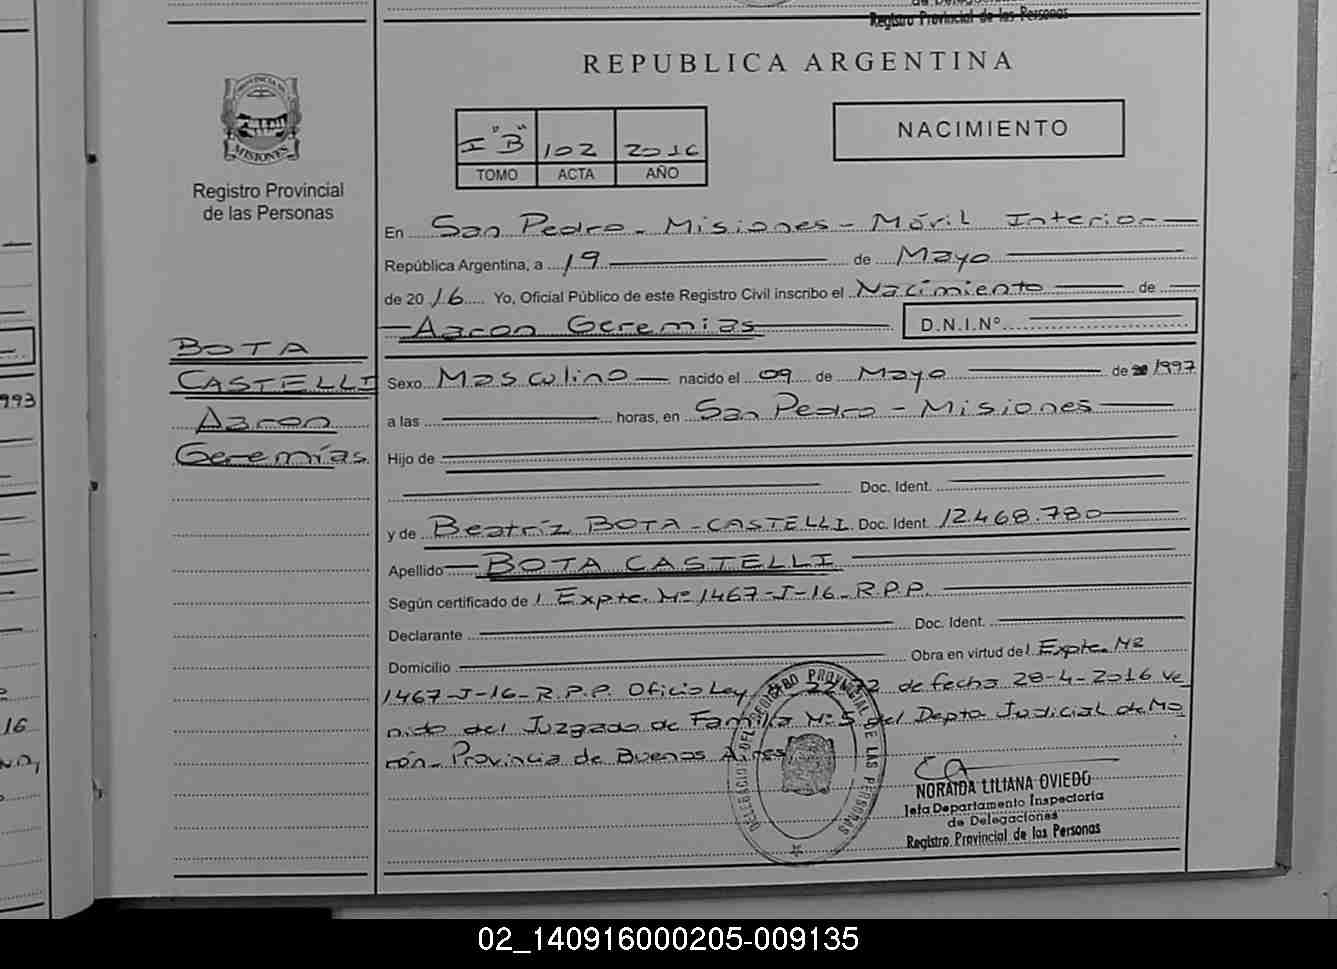 de Delegaciones
Registro Provincial de las Personas
REPUBLICA ARGENTINA
PROVINCIA DE
MISIONES
Registro Provincial
de las Personas
I "B" 102 2016
TOMO ACTA AÑO
NACIMIENTO
En San Pedro - Misiones - Móvil Interior
República Argentina, a 19 de Mayo
de 2016 Yo, Oficial Público de este Registro Civil inscribo el Nacimiento de
Aaron Geremias D.N.I.Nº
BOTA
CASTELLI
Aaron
Geremías
Sexo Masculino nacido el 09 de Mayo de 1997
a las horas, en San Pedro - Misiones
Hijo de
Doc. Ident.
y de Beatríz BOTA-CASTELLI Doc. Ident. 12.468.780
Apellido BOTA CASTELLI
Según certificado de l Expte. Nº 1467-J-16-R.P.P.
Declarante Doc. Ident.
Domicilio Obra en virtud del Expte. Nº
1467-J-16-R.P.P. Oficio Ley 22172 de fecha 28-4-2016 ve
nido del Juzgado de Familia Nº 5 del Depto Judicial de Mo
rón - Provincia de Buenos Aires
DELEGACION DEL REGISTRO PROVINCIAL DE LAS PERSONAS
NORAIDA LILIANA OVIEDO
Jefa Departamento Inspectoria
de Delegaciones
Registro Provincial de las Personas
993
16
02_140916000205-009135